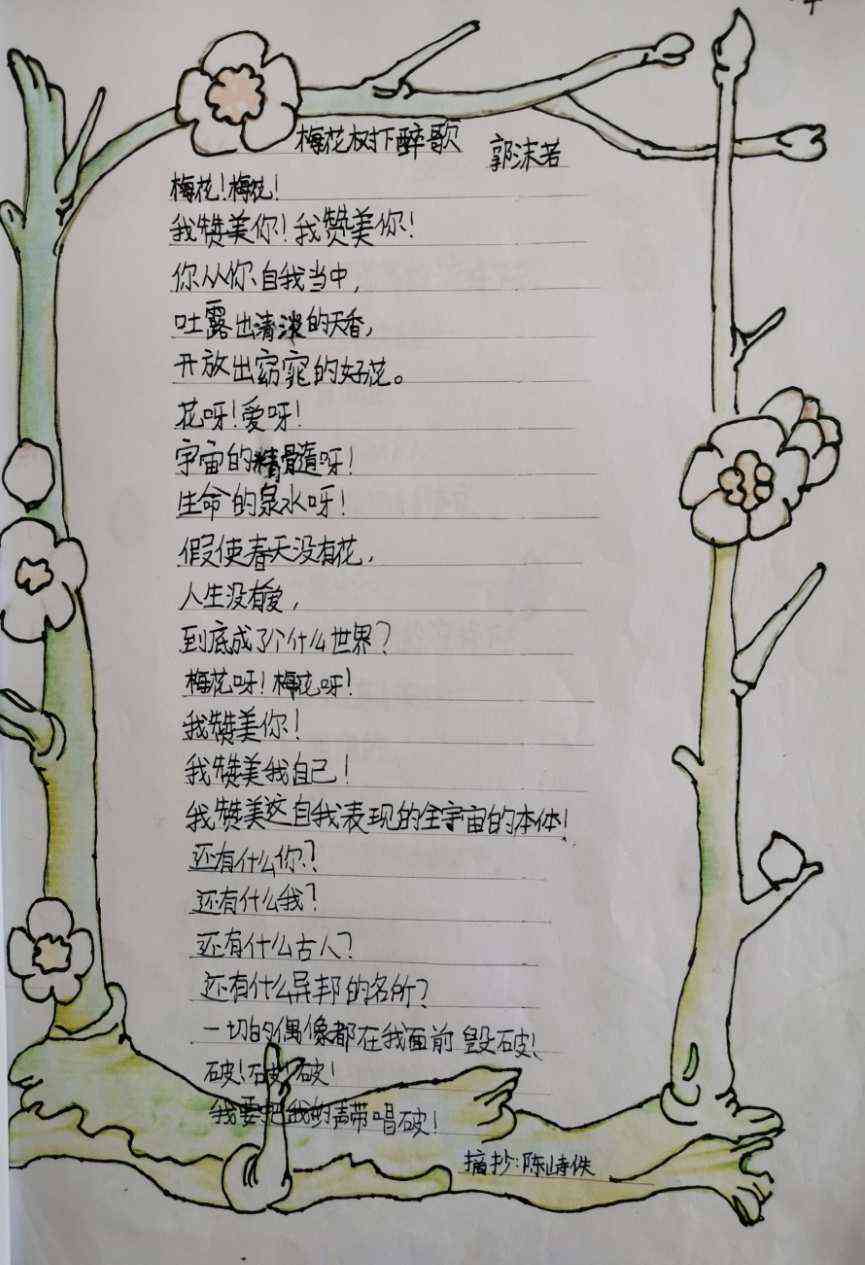 梅花树下醉歌
郭沫若
梅花！梅花！
我赞美你！我赞美你！
你从你自我当中，
吐露出清淡的天香，
开放出窈窕的好花。
花呀！爱呀！
宇宙的精髓呀！
生命的泉水呀！
假使春天没有花，
人生没有爱，
到底成了个什么世界？
梅花呀！梅花呀！
我赞美你！
我赞美我自己！
我赞美这自我表现的全宇宙的本体！
还有什么你？
还有什么我？
还有什么古人？
还有什么异邦的名所？
一切的偶像都在我面前毁破！
破！破！破！
我要把我的声带唱破！
摘抄：陈